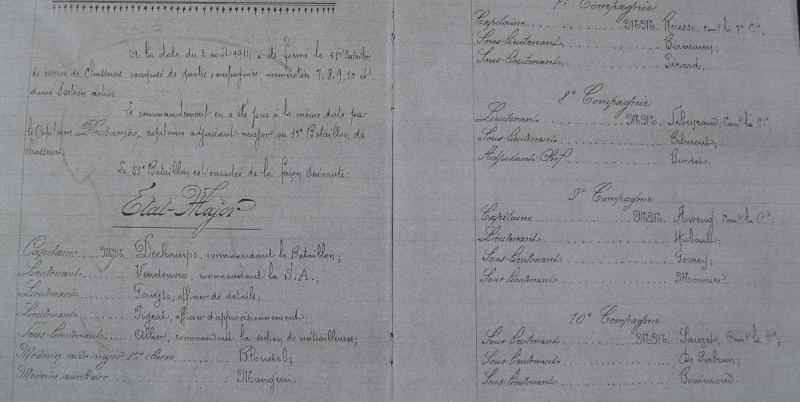 A la date du 3 août 1914 a été formé le 51e Bataillon
de réserve de Chasseurs, composé de quatre compagnies, numérotées 7, 8, 9, 10 et
d'une Section active.
Le commandement en a été pris à la même date par
le Capitaine Dechamps, capitaine adjudant-major au 11e Bataillon de
chasseurs;
Le 51e Bataillon est encadré de la façon suivante:
Etat-Major
Capitaine MM. Dechamps, commandant le Bataillon;
Lieutenant Vendeuvre, commandant la S.A.;
Lieutenant officier de détails;
Lieutenant Pigeat, officier d'approvisionnement;
Sous-Lieutenant Ollier, commandant la section de mitrailleuses;
Médecin aide-major 1ère classe Blondel;
Médecin auxiliaire Mangini.
7e Compagnie
Capitaine MM. Rousse, comt la 7e Cie;
Sous-Lieutenant Birmann;
Sous-Lieutenant Pérard;
8e Compagnie
Lieutenant MM. comt la Cie;
Sous-Lieutenant
Adjudant-Chef Burdet.
9e Compagnie
Capitaine MM. comt la Cie;
Lieutenant Hubault;
Sous-Lieutenant
Sous-Lieutenant Monnier
10e Compagnie
Sous-Lieutenant MM. Sauret, comt la Cie;
Sous-Lieutenant
Sous-Lieutenant Bonimond